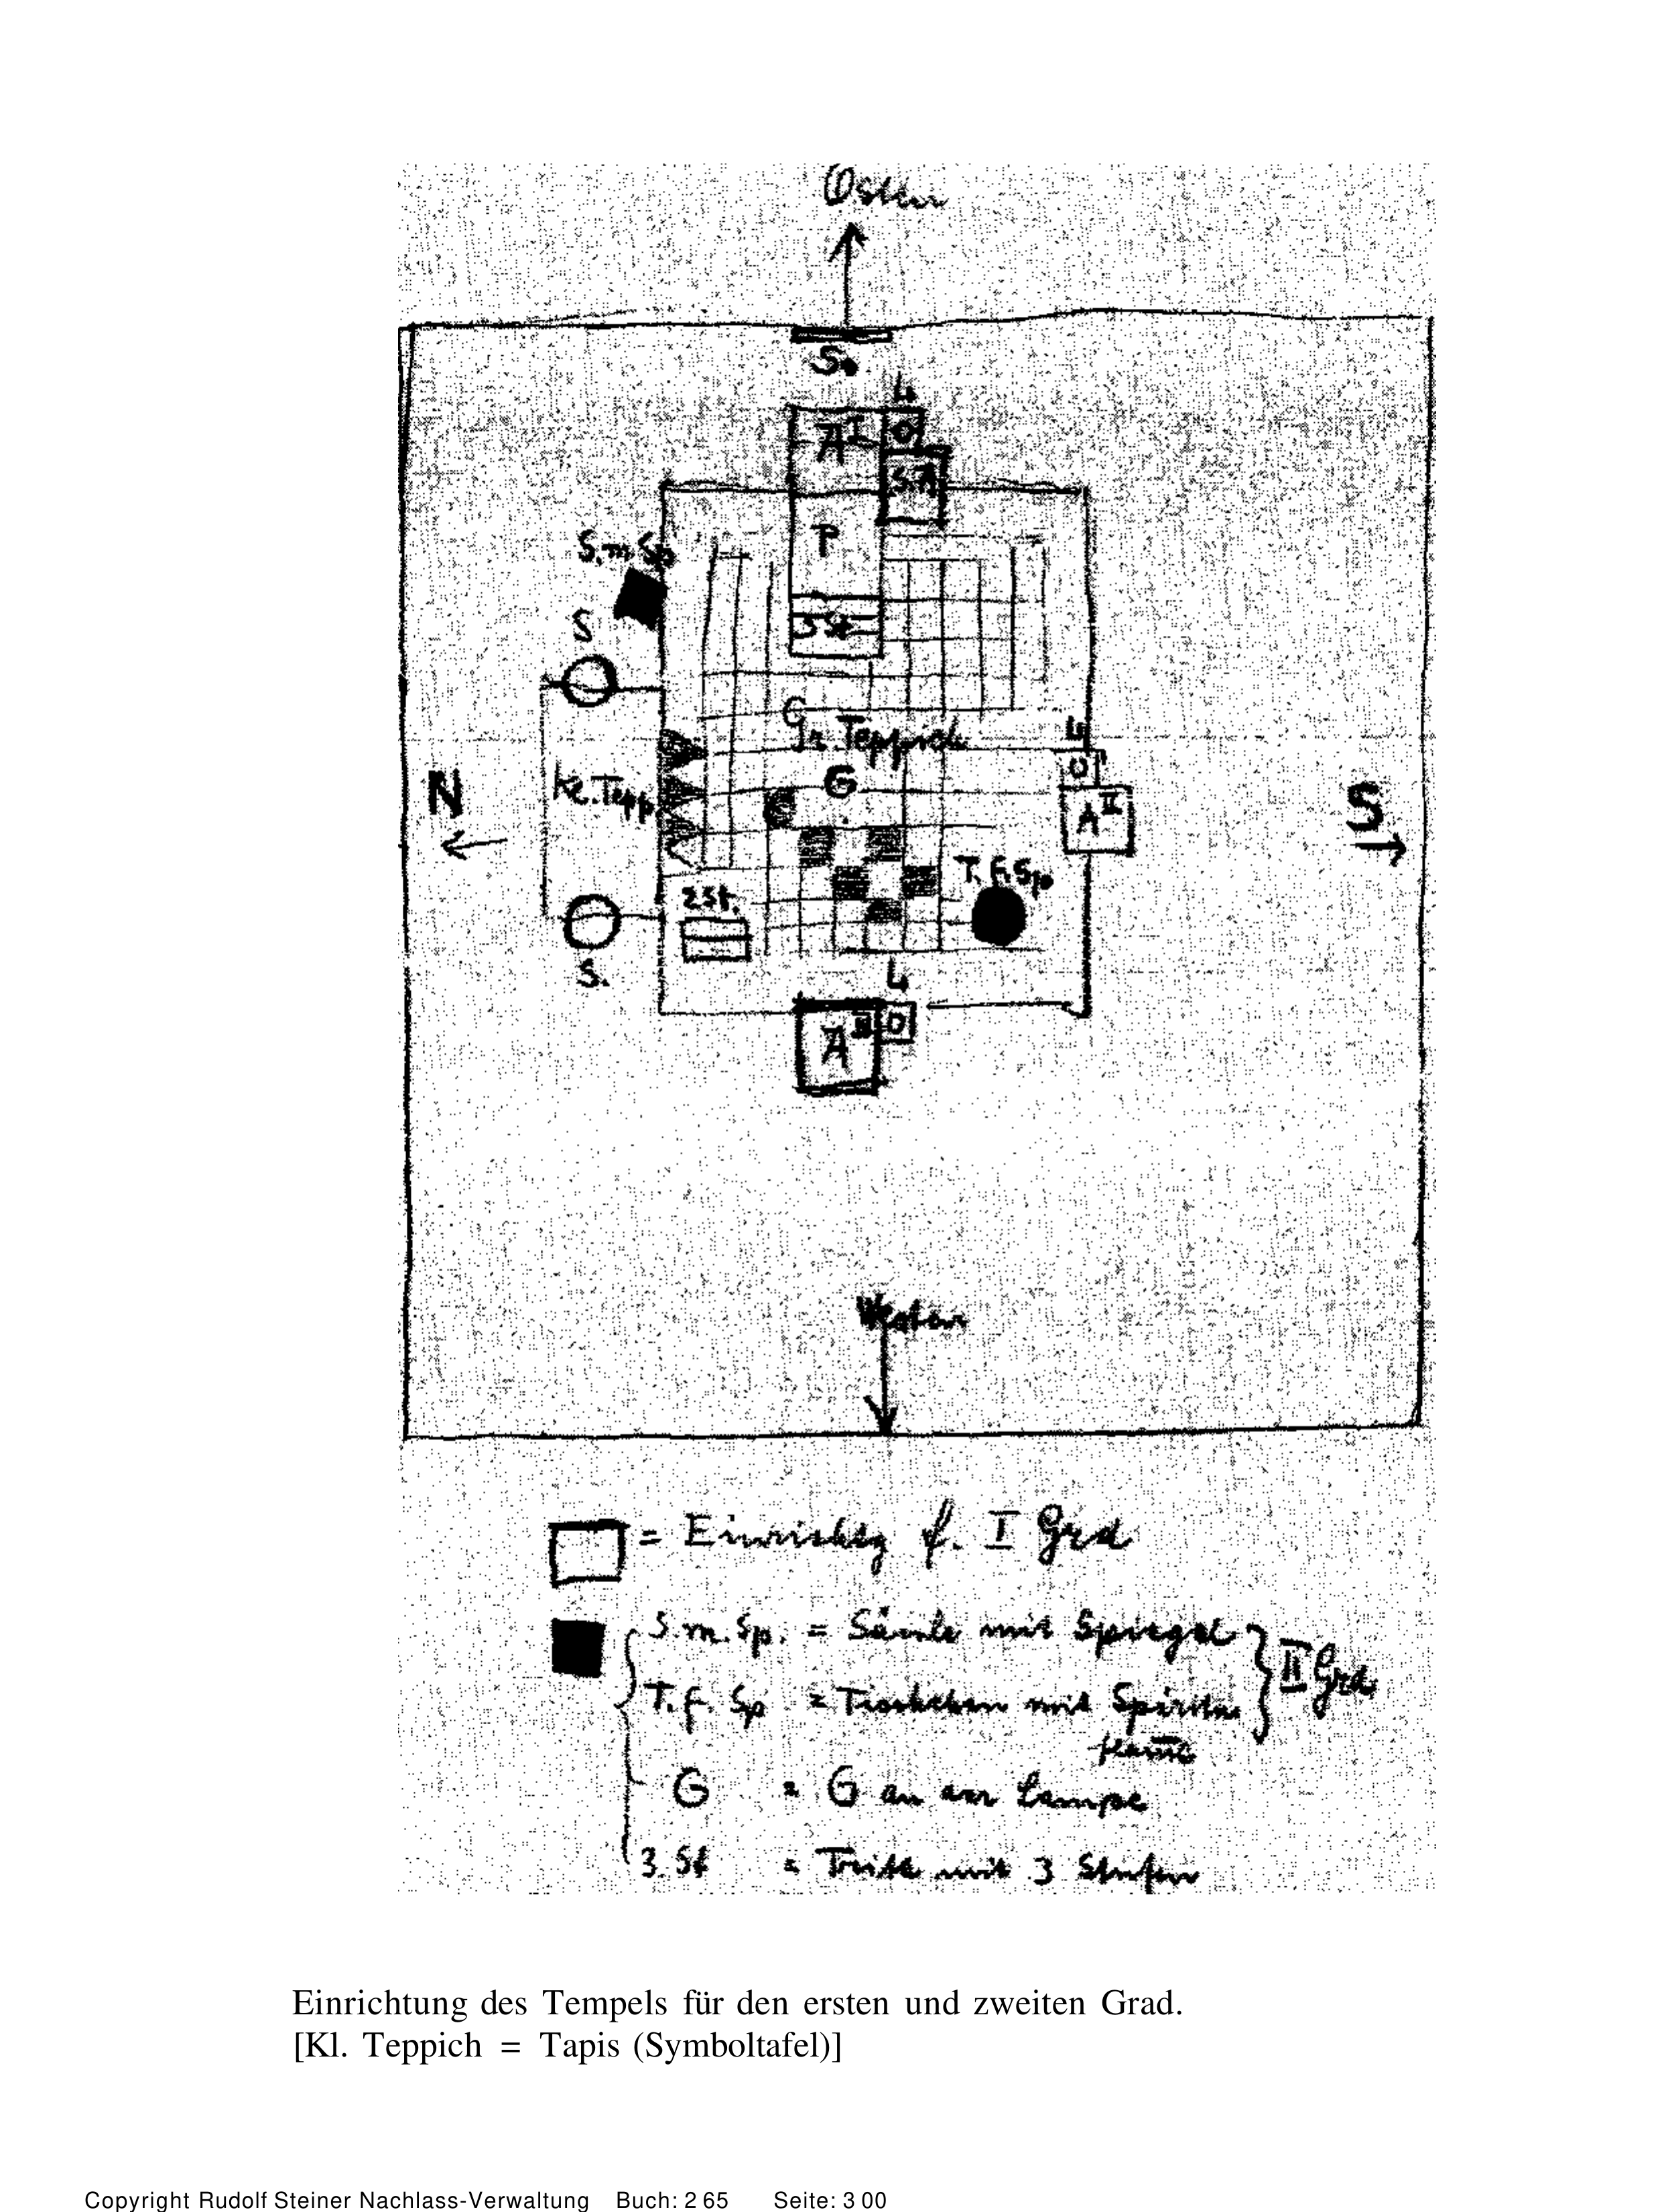 Osten
So.
L
A I
O
S.A
P
S.m.Sp
S
3 St
Gr. Teppich
G
L
O
N
Kl. Tepp.
A II
S
T.f.Sp.
2 St.
S.
L
A
O
Westen
= Einrichtg f. I Grd
S.m.Sp. = Säule mit Spiegel
II Grd
T.f. Sp = Tischchen mit Spiritus
flamme
G = G an der Lampe
3. St = Tritt mit 3 Stufen
Einrichtung des Tempels für den ersten und zweiten Grad.
[Kl. Teppich = Tapis (Symboltafel)]
Copyright Rudolf Steiner Nachlass-Verwaltung Buch: 2 65 Seite: 3 00